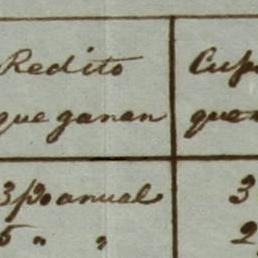 Redito Cup
que ganan que
3 p% anual 3
5 " " 2